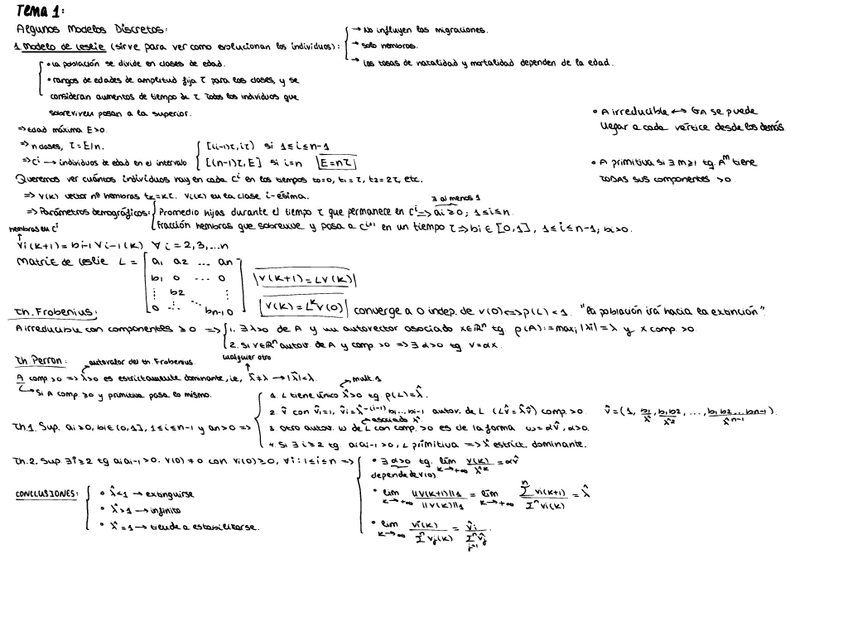 Tema 1:
Algunos Modelos Discretos:
1. Modelo de Leslie (sirve para ver como evolucionan los individuos):
→ No influyen las migraciones.
→ Solo hembras.
→ Las tasas de natalidad y mortalidad dependen de la edad.
• La población se divide en clases de edad.
• Rangos de edades de amplitud fija τ para las clases, y se
consideran aumentos de tiempo de τ. Todos los individuos que
sobreviven pasan a la superior.
• A irreducible ↔ GA se puede
llegar a cada vértice desde los demás.
• A primitiva si ∃ m≥1 tq. A^m tiene
TODAS sus componentes >0.
⇒ Edad máxima E>0.
⇒ n clases, τ=E/n.
⇒ C^i → individuos de edad en el intervalo { [(i-1)τ, iτ) si 1≤i≤n-1
[(n-1)τ, E] si i=n E=nτ
Queremos ver cuántos individuos hay en cada C^i en los tiempos t0=0, t1=τ, t2=2τ, etc.
⇒ V(k) vector nº hembras tk=kτ. Vi(k) en la clase i-ésima.
∃ al menos 1
⇒ Parámetros demográficos: { Promedio hijas durante el tiempo τ que permanece en C^i ⇒ ai≥0; 1≤i≤n.
Fracción hembras que sobrevive y pasa a C^{i+1} en un tiempo τ ⇒ bi ∈ [0,1], 1≤i≤n-1; bi>0.
hembras en C^i
Vi(k+1) = bi-1 Vi-1(k) ∀ i=2,3,...n
Matriz de Leslie L = [a1 a2 ... an
b1 0 ... 0
⋮ b2 ⋮
0 ... bn-1 0]
V(k+1) = LV(k)
V(k) = L^k V(0) converge a 0 indep. de V(0) ⟺ ρ(L)<1. "La población irá hacia la extinción".
Th. Frobenius:
A irreducible con componentes ≥0 ⇒ { 1. ∃ λ>0 de A y un autovector asociado x∈R^n tq. ρ(A):=maxi |λi|=λ y x comp >0.
2. Si v∈R^n autov. de A y comp. >0 ⇒ ∃ α>0 tq. v=αx.
Th. Perron:
autovalor del th. Frobenius.
cualquier otro
A comp >0 ⇒ λ>0 es estrictamente dominante, i.e, λ̃≠λ → |λ̃|<λ.
Si A comp ≥0 y primitiva pasa lo mismo.
mult. 1
Th 1. Sup. ai≥0, bi∈(0,1], 1≤i≤n-1 y an>0 ⇒
1. L tiene único λ̂>0 tq. ρ(L)=λ̂.
2. v̂ con v̂1=1, v̂i=λ̂^{-(i-1)} b1...bi-1 autov. de L (Lv̂=λ̂v̂) comp. >0. v̂=(1, b1/λ̂, b1b2/λ̂^2, ..., b1b2...bn-1/λ̂^{n-1}).
asociado λ̂.
3. Otro autov. w de L con comp. >0 es de la forma w=αv̂, α>0.
4. Si ∃ i≥2 tq. aiai-1>0, L primitiva ⇒ λ̂ estrict. dominante.
Th. 2. Sup ∃ i≥2 tq aiai-1>0. V(0)≠0 con Vi(0)≥0, ∀i: 1≤i≤n ⇒
• ∃ α>0 tq. lim k→+∞ V(k)/λ̂^k = αv̂
depende de V(0).
• lim k→+∞ ||V(k+1)||1/||V(k)||1 = lim k→+∞ Σ^n Vi(k+1)/Σ^n Vi(k) = λ̂
• lim k→∞ Vi(k)/Σ^n Vj(k) = v̂i/Σ^n j=1 v̂j.
CONCLUSIONES:
• λ̂<1 → extinguirse
• λ̂>1 → infinito
• λ̂=1 → tiende a estabilizarse.